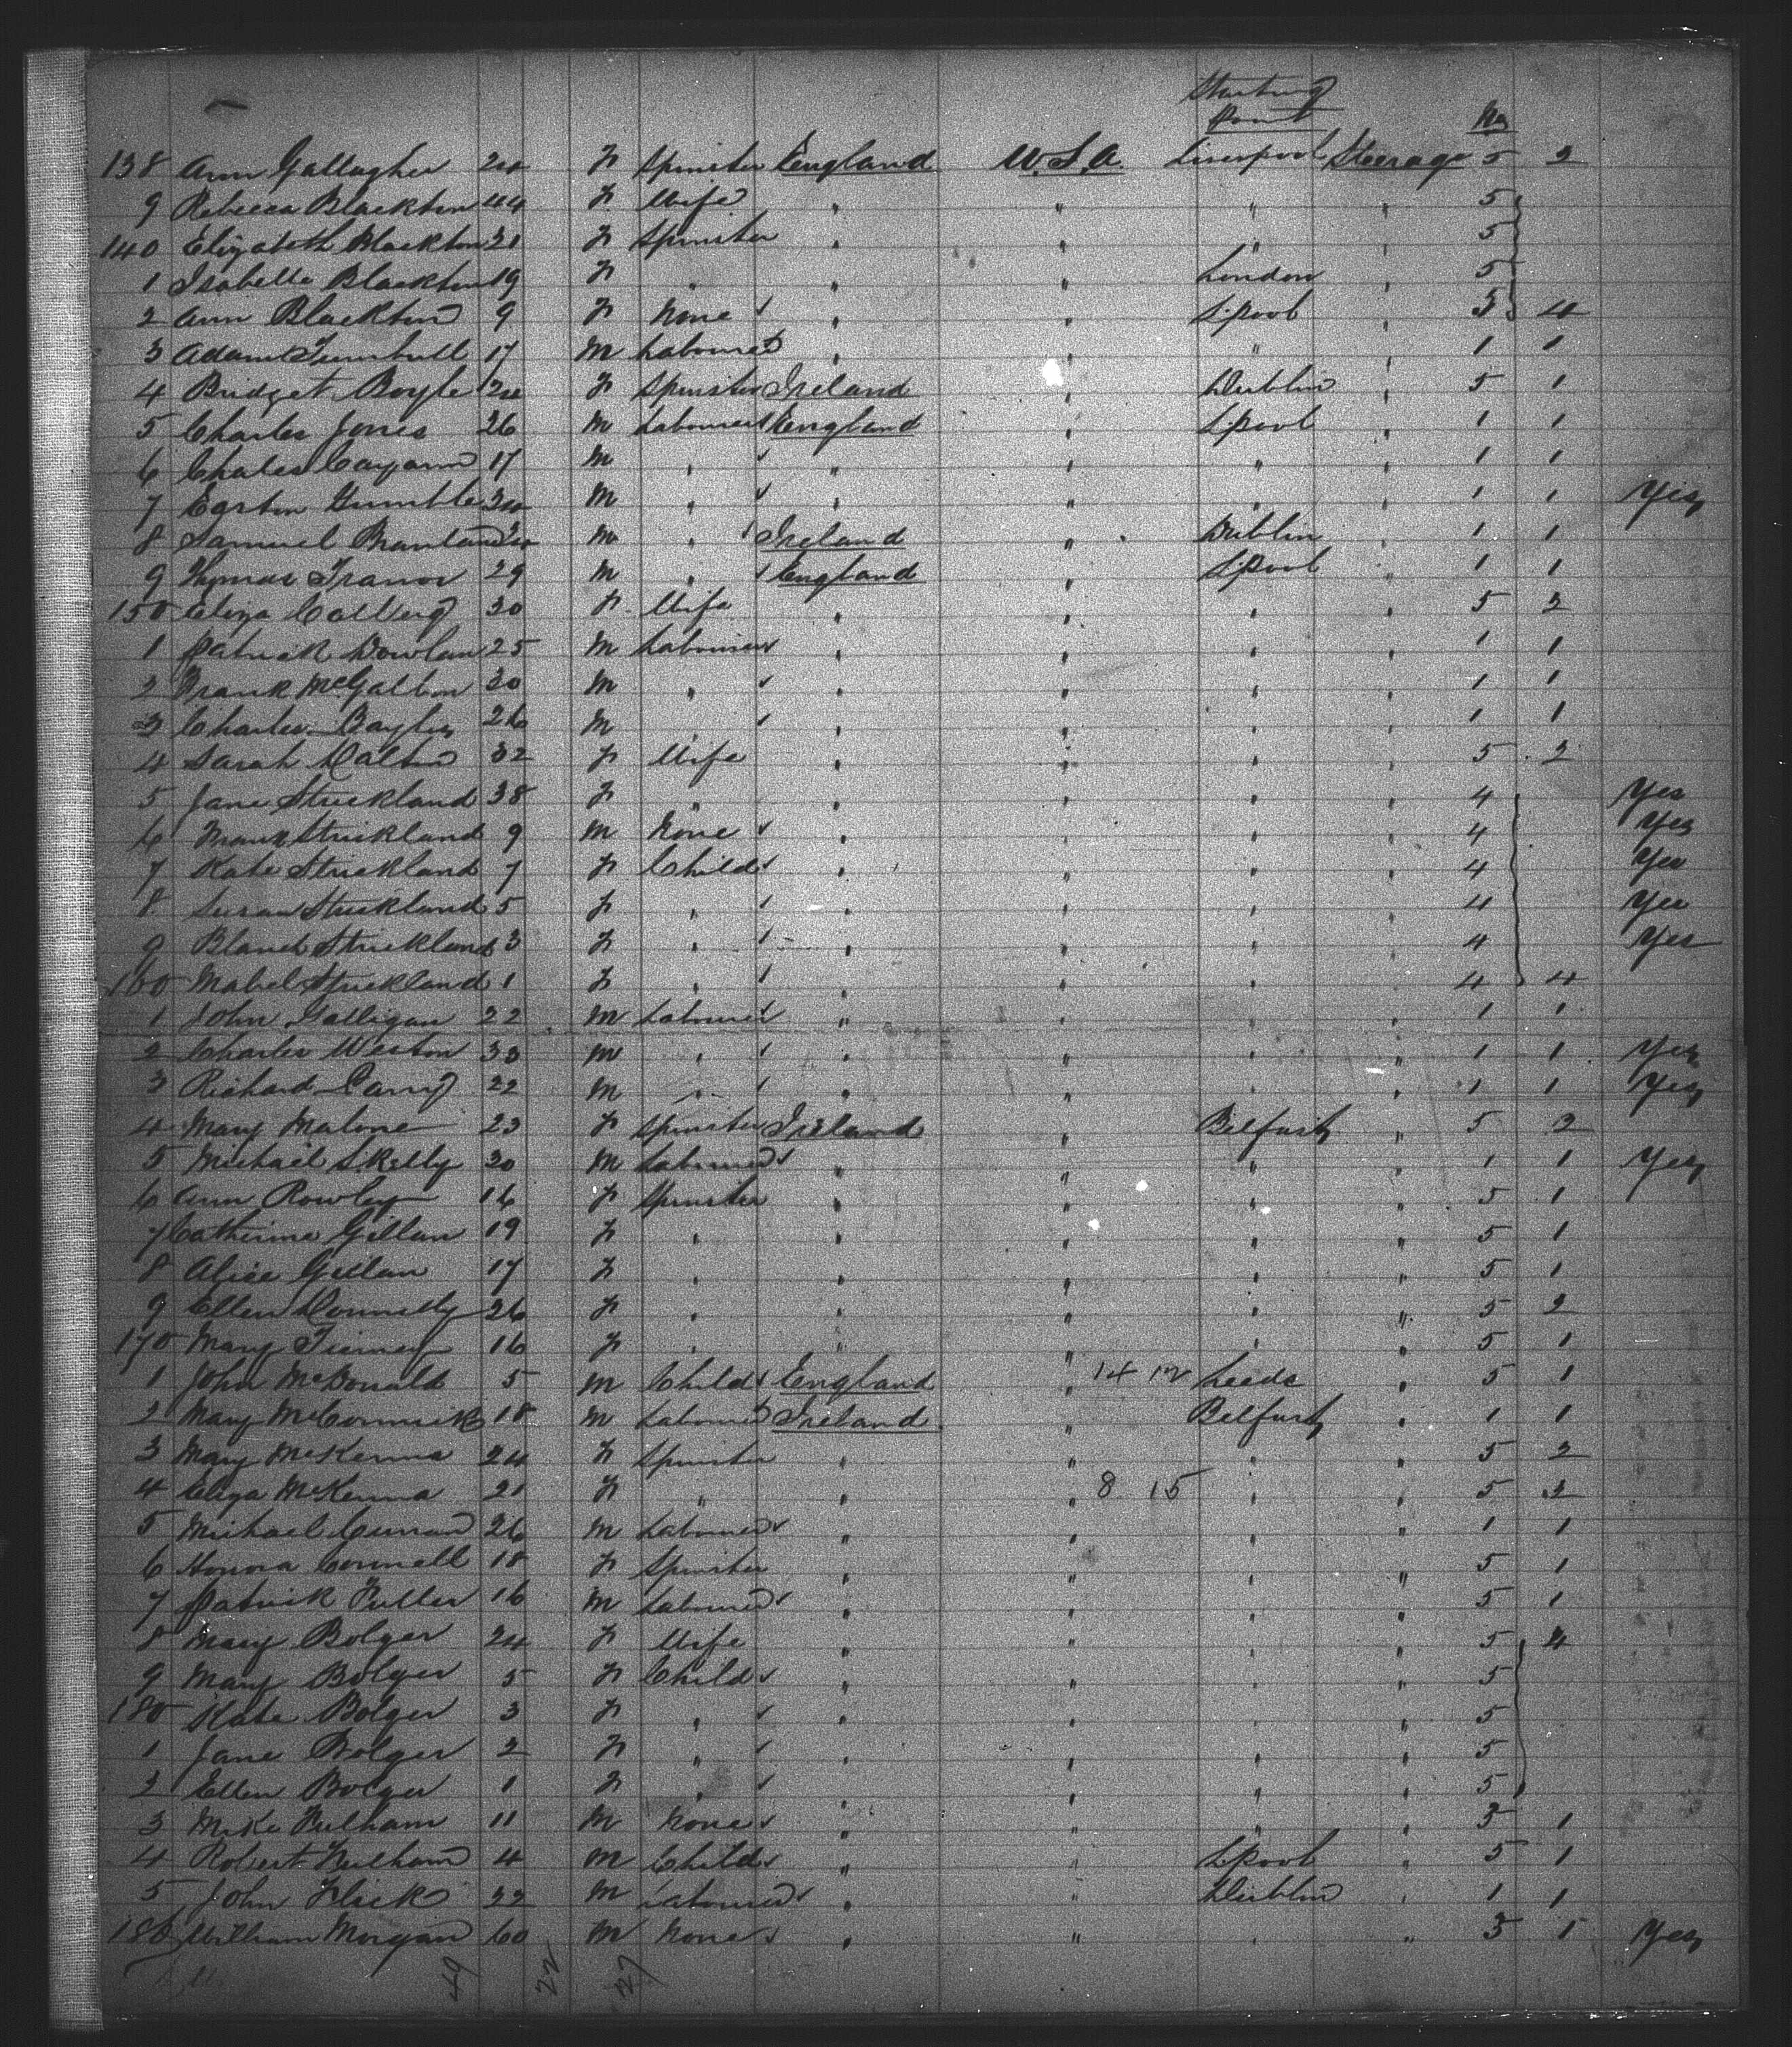 Starting
Point No
138 Ann Gallagher 24 F Spinster England U.S.A. Liverpool Steerage 5 2
9 Rebecca Blackton 44 F Wife " " " " 5
140 Elizabeth Blackton 21 F Spinster " " " " 5
1 Isabella Blackton 19 F " " " London " 5
2 Ann Blackton 9 F None " " L.pool " 5 4
3 Adam Turnbull 17 M Labourer " " " " 1 1
4 Bridget Boyle 24 F Spinster Ireland " Dublin " 5 1
5 Charles Jones 26 M Labourer England " L.pool " 1 1
6 Charles 17 M " " " " " 1 1
7 34 M " " " " " 1 1 Yes
8 Samuel M " Ireland " Dublin " 1 1
9 Thomas Tranor 29 M " England " L.pool " 1 1
150 Eliza 30 F Wife " " " " 5 2
1 Patrick Dowlan 25 M Labourer " " " " 1 1
2 Frank 30 M " " " " " 1 1
3 Charles Bayley 26 M " " " " " 1 1
4 Sarah Dalton 32 F Wife " " " " 5 2
5 Jane Strickland 38 F " " " " " 4 Yes
6 Frank Strickland 9 M None " " " " 4 Yes
7 Kate Strickland 7 F Child " " " " 4 Yes
8 Susan Strickland 5 F " " " " " 4 Yes
9 Blanch Strickland 3 F " " " " " 4 Yes
160 Mabel Strickland 1 F " " " " " 4 4
1 John Galligan 22 M Labourer " " " " 1 1
2 Charles Weston 33 M " " " " " 1 1 Yes
3 Richard 22 M " " " " " 1 1 Yes
4 Mary Malone 23 F Spinster Ireland " Belfast " 5 2
5 Michael Skelly 20 M Labourer " " " " 1 1 Yes
6 Ann Rowley 16 F Spinster " " " " 5 1
7 Catherine Gillan 19 F " " " " " 5 1
8 Alice Gillan 17 F " " " " " 5 1
9 Ellen Donnelly 26 F " " " " " 5 2
170 Mary Tierney 16 F " " " " " 5 1
1 John McDonald 5 M Child England " 14 12 Leeds " 5 1
2 Mary McCormick 18 M Labourer Ireland " Belfast " 1 1
3 Mary McKenna 24 F Spinster " " " " 5 2
4 Eliza McKenna 21 F " " " 8 15 " " 5 2
5 Michael Curran 26 M Labourer " " " " 1 1
6 Honora Connell 18 F Spinster " " " " 5 1
7 Patrick Fuller 16 M Labourer " " " " 5 1
8 Mary Bolger 24 F Wife " " " " 5 4
9 Mary Bolger 5 F Child " " " " 5
180 Kate Bolger 3 F " " " " " 5
1 Jane Bolger 2 F " " " " " 5
2 Ellen Bolger 1 F " " " " " 5
3 Mike Fulham 11 M None " " " " 5 1
4 Robert Fulham 4 M Child " " L.pool " 5 1
5 John Flick 22 M Labourer " " Dublin " 1 1
186 William Morgan 60 M None " " " " 5 1 Yes
49 22 27